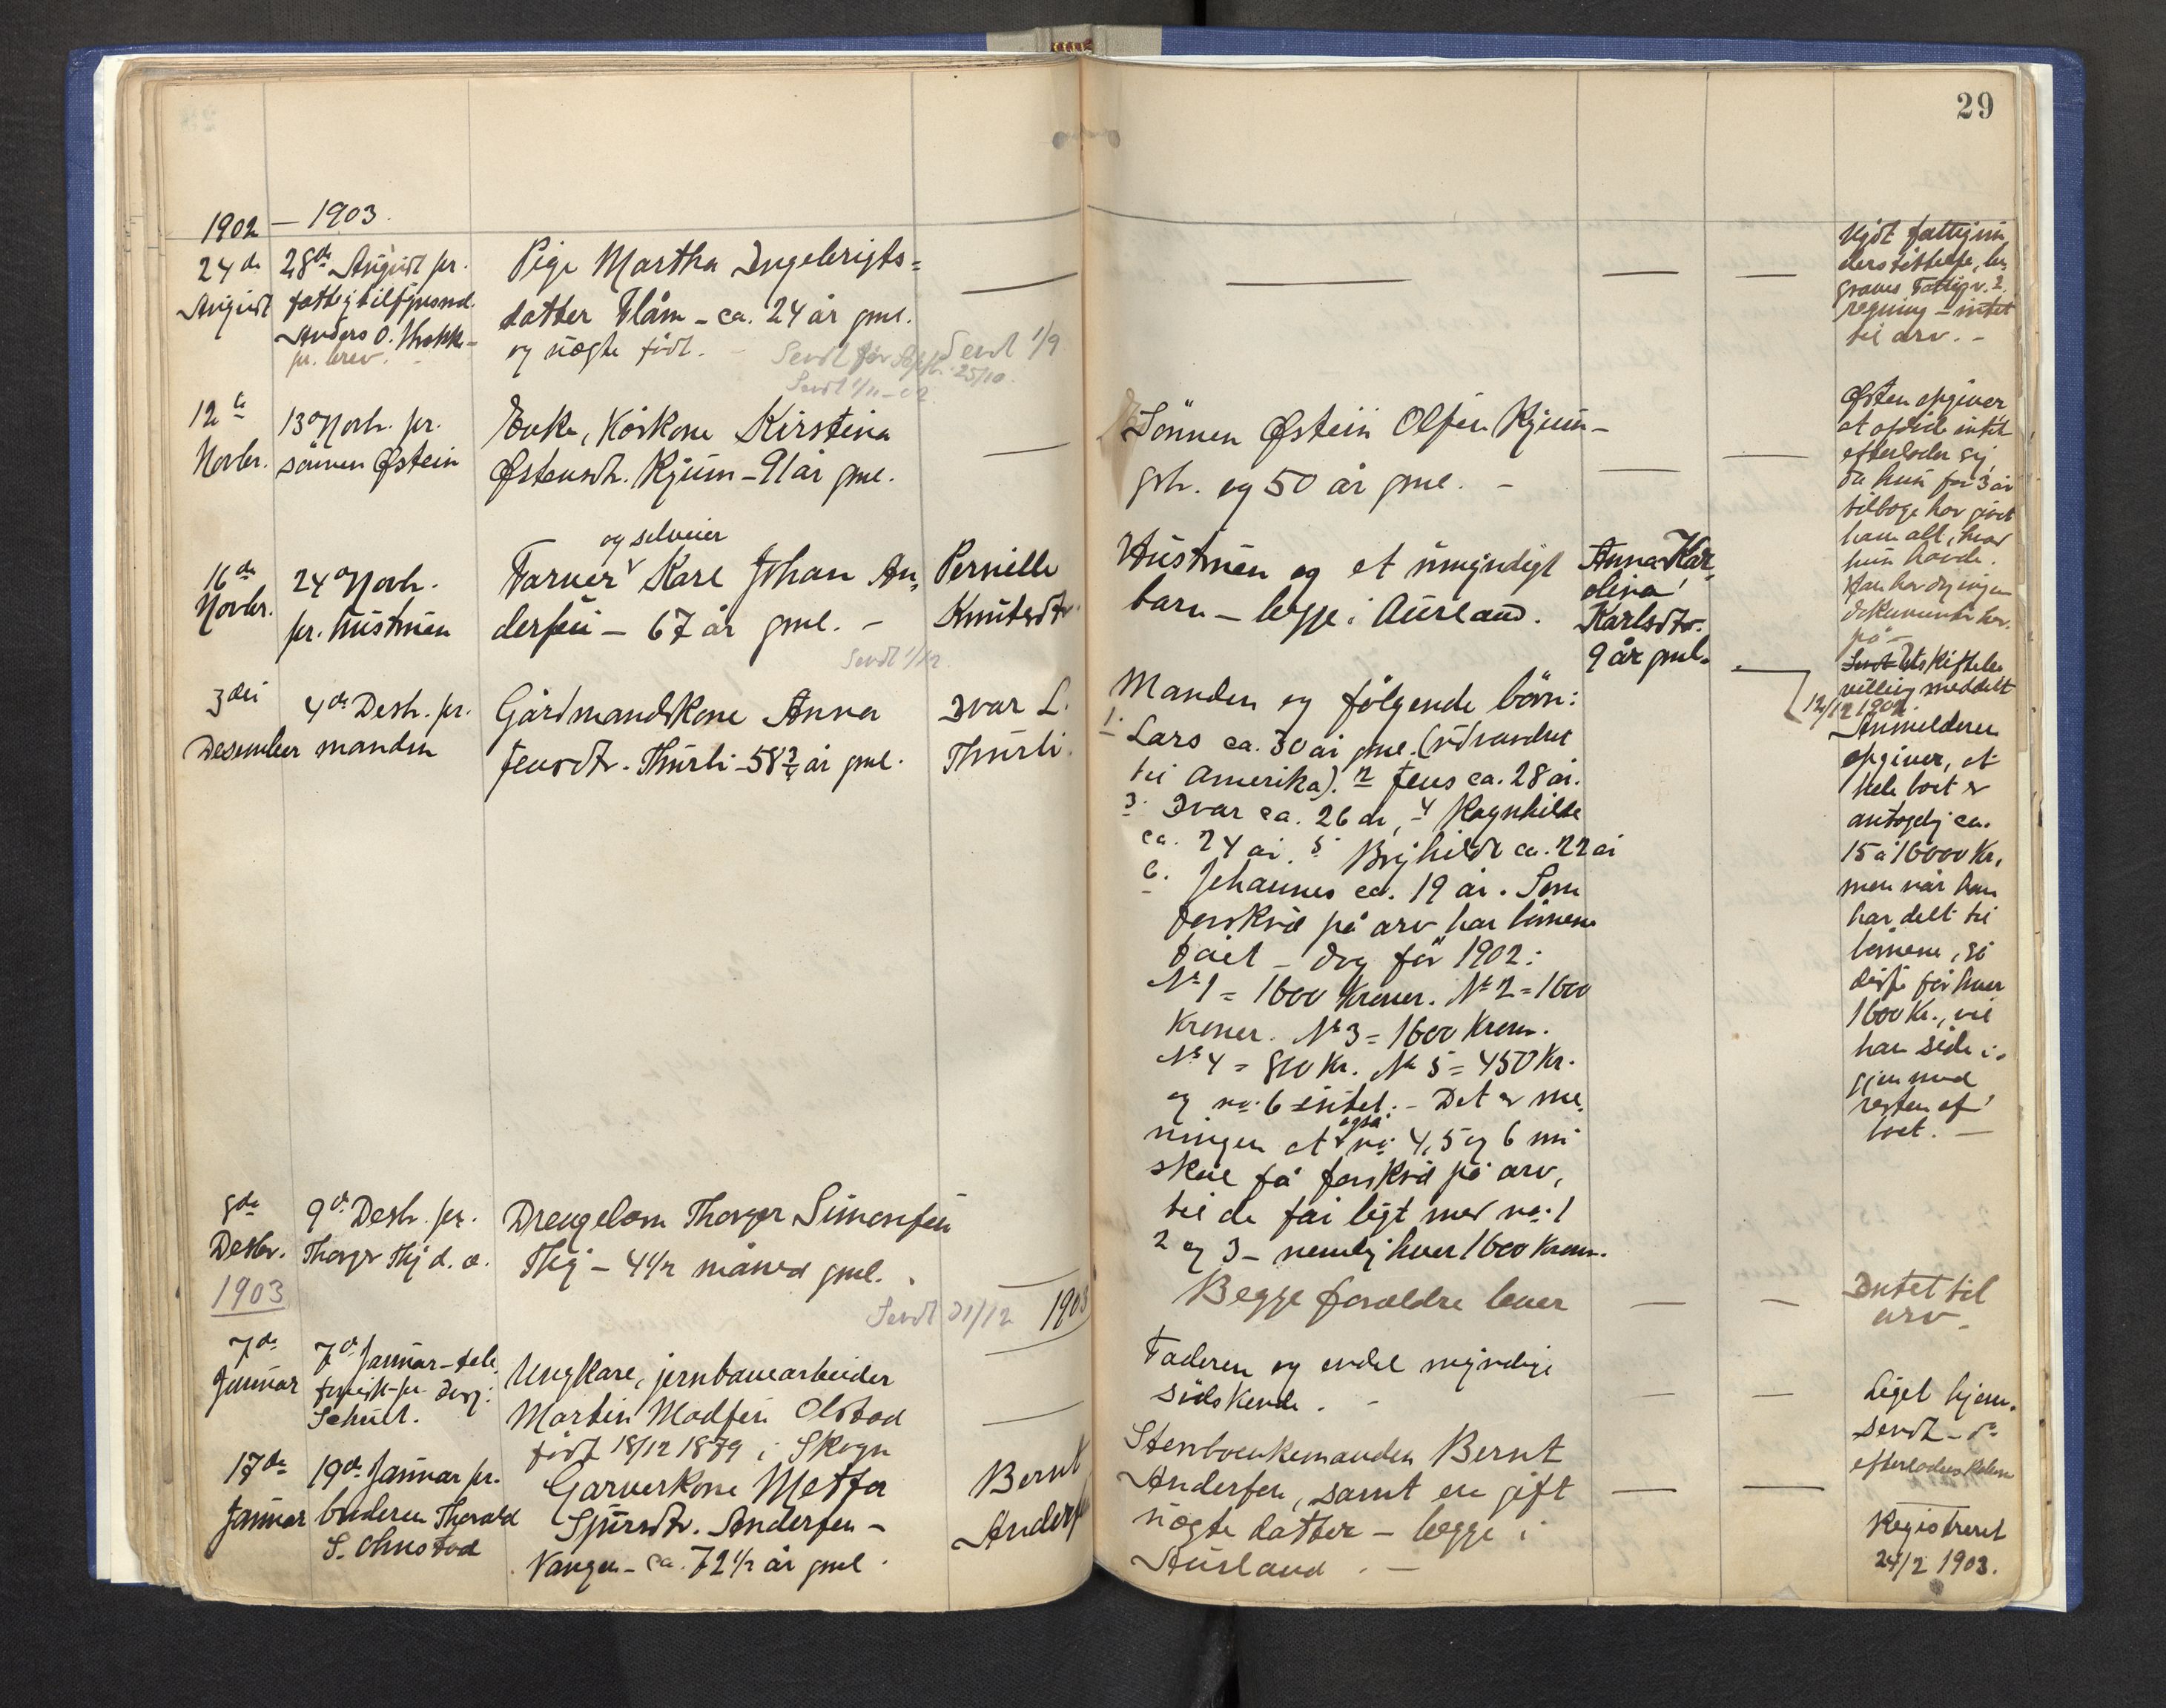 29
1902 – 1903.
24de
August
28de August pr.
fattigtilsynsmd.
Anders O.
pr. brev.
Pige Martha Ingebrigts=
datter Flåm – ca. 24 år gml.
og uægte født.
Sendt 1/9
Sendt for Septbr. 25/10.
Sendt 1/11–02.
Nydt fattigun
derstøttelse, be
graves Fattigv.s
regning – intet
til arv. –
12te
Novbr.
13de Novb. pr.
sönnen Østein
Enke, Kårkone Kirstina
Østensdt. Kjum – 91 år gml.
Sönnen Østein Olsen Kjum –
gbr. og 50 år gml. –
Østen opgiver
at afdöde intet
efterlader sig,
da hun for 3 år
tilbage har givet
ham alt, hvad
hun havde.
Han har dog ingen
dokumenter her-
på –
16de
Novbr.
24de Novb.
pr. hustruen
og selveier
Farver Karl Johan An=
dersen – 67 år gml. –
Sendt 1/12.
Pernille
Knutsdtr.
Hustruen og et umyndigt
barn – begge i Aurland.
Anna Kar
olina
Karlsdtr.
9 år gml.
Uskiftebe
villing meddelt
12/12 1902.
3die
Desember
4de Desb. pr.
manden
Gårdmandskone Anna
Jensdtr. Thurli – 58 3/4 år gml.
Ivar L.
Thurli.
Manden og følgende börn:
1. Lars ca. 30 år gml. (udvandret
til Amerika). 2 Jens ca. 28 år.
3. Ivar ca. 26 år, 4 Ragnhilde
ca. 24 år. 5. Brijhildt ca. 22 år
6. Johannes ca. 19 år. Som
forskud på arv har börnene
fået – dog för 1902:
No 1 = 1600 Kroner. No 2 = 1600
Kroner. No 3 = 1600 Kroner.
No 4 = 800 Kr. No 5 = 450 Kr.
og no. 6 intet. – Det er me-
også
ningen at no. 4, 5 og 6 nu
skal få forskud på arv,
til de får ligt med no. 1
2 og 3 – nemlig hver 1600 Kroner.
Anmelderen
opgiver, at
hele boet er
antagelig ca.
15 à 16000 Kr,
men når han
har delt til
börnene, så
disse får hver
1600 Kr., vil
han sidde i-
gjen med
resten af
boet. –
8de
Desbr.
9de Desb. pr.
Thorger Thij d. æ.
Drengebarn Thorger Simonsen
Thij – 4 1/2 måned gml.
Begge forældre lever
Intet til
arv –
1903
Sendt 31/12
1903
7de
Januar
7de Januar – tele
fonisk pr. Ing:
Schult.
Ungkarl, jernbanearbeider
Martin Madsen Olstad
født 18/12 1879 i Skogn
Faderen og endel myndige
södskende. –
Liget hjem-
sendt –
17de
Januar
19de Januar pr.
broderen Thorald
S. Ohnstad
Garverkone Metta
Sjursdtr. Andersen –
Vangen – ca. 72 1/2 år gml.
Bernt
Andersen
Stenbrukemanden Bernt
Andersen, samt en gift
uægte datter – begge i
Aurland. –
Registreret
24/2 1903.